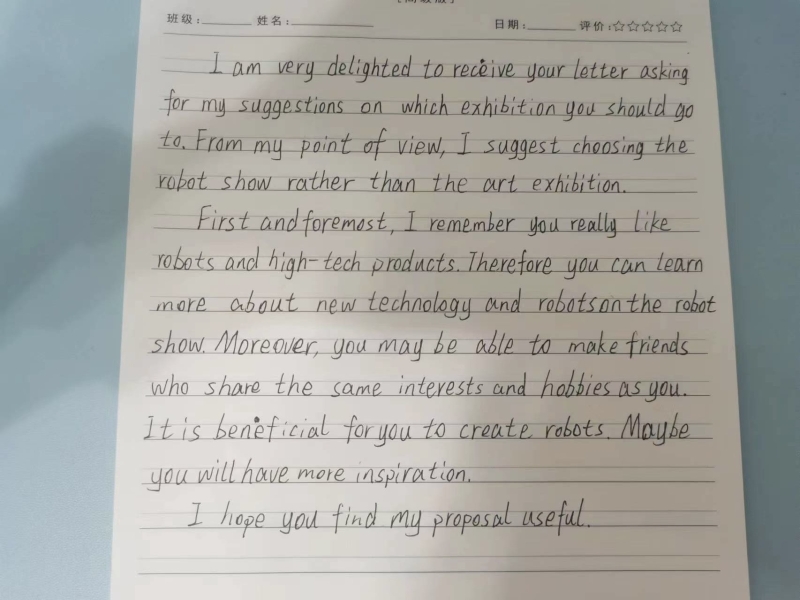 班级: 姓名: 日期: 评价:☆☆☆☆☆
I am very delighted to receive your letter asking
for my suggestions on which exhibition you should go
to. From my point of view, I suggest choosing the
robot show rather than the art exhibition.
First and foremost, I remember you really like
robots and high-tech products. Therefore you can learn
more about new technology and robots on the robot
show. Moreover, you may be able to make friends
who share the same interests and hobbies as you.
It is beneficial for you to create robots. Maybe
you will have more inspiration.
I hope you find my proposal useful.